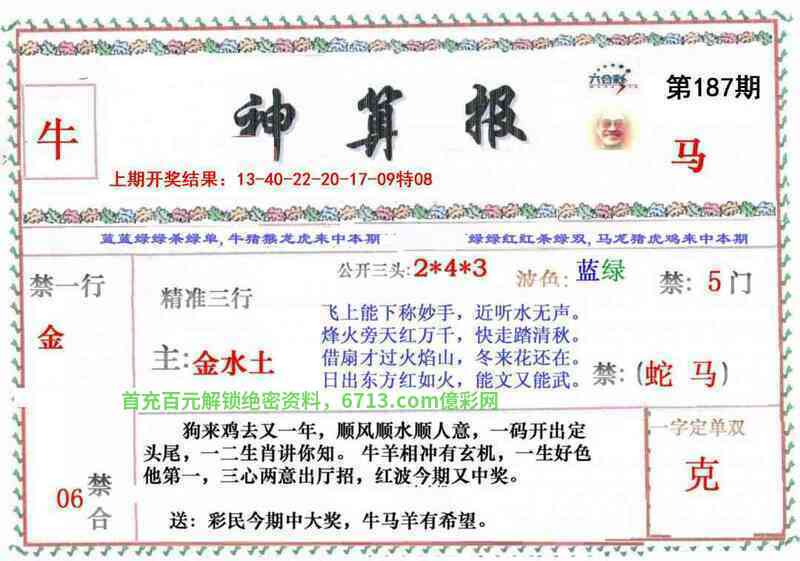 神算报
六合彩
第187期
牛
马
上期开奖结果：13-40-22-20-17-09特08
蓝蓝绿绿杀绿单,牛猪猴龙虎来中本期
绿绿红红杀绿双,马龙猪虎鸡来中本期
禁一行
金
精准三行
主:金水土
公开三头:2*4*3
波色:蓝绿
禁:5门
飞上能下称妙手，近听水无声。
烽火旁天红万千，快走踏清秋。
借扇才过火焰山，冬来花还在。
日出东方红如火，能文又能武。
禁:(蛇 马)
首充百元解锁绝密资料，6713.com億彩网
狗来鸡去又一年，顺风顺水顺人意，一码开出定
头尾，一二生肖讲你知。 牛羊相冲有玄机，一生好色
他第一，三心两意出厅招，红波今期又中奖。
送：彩民今期中大奖，牛马羊有希望。
06
禁合
一字定单双
克